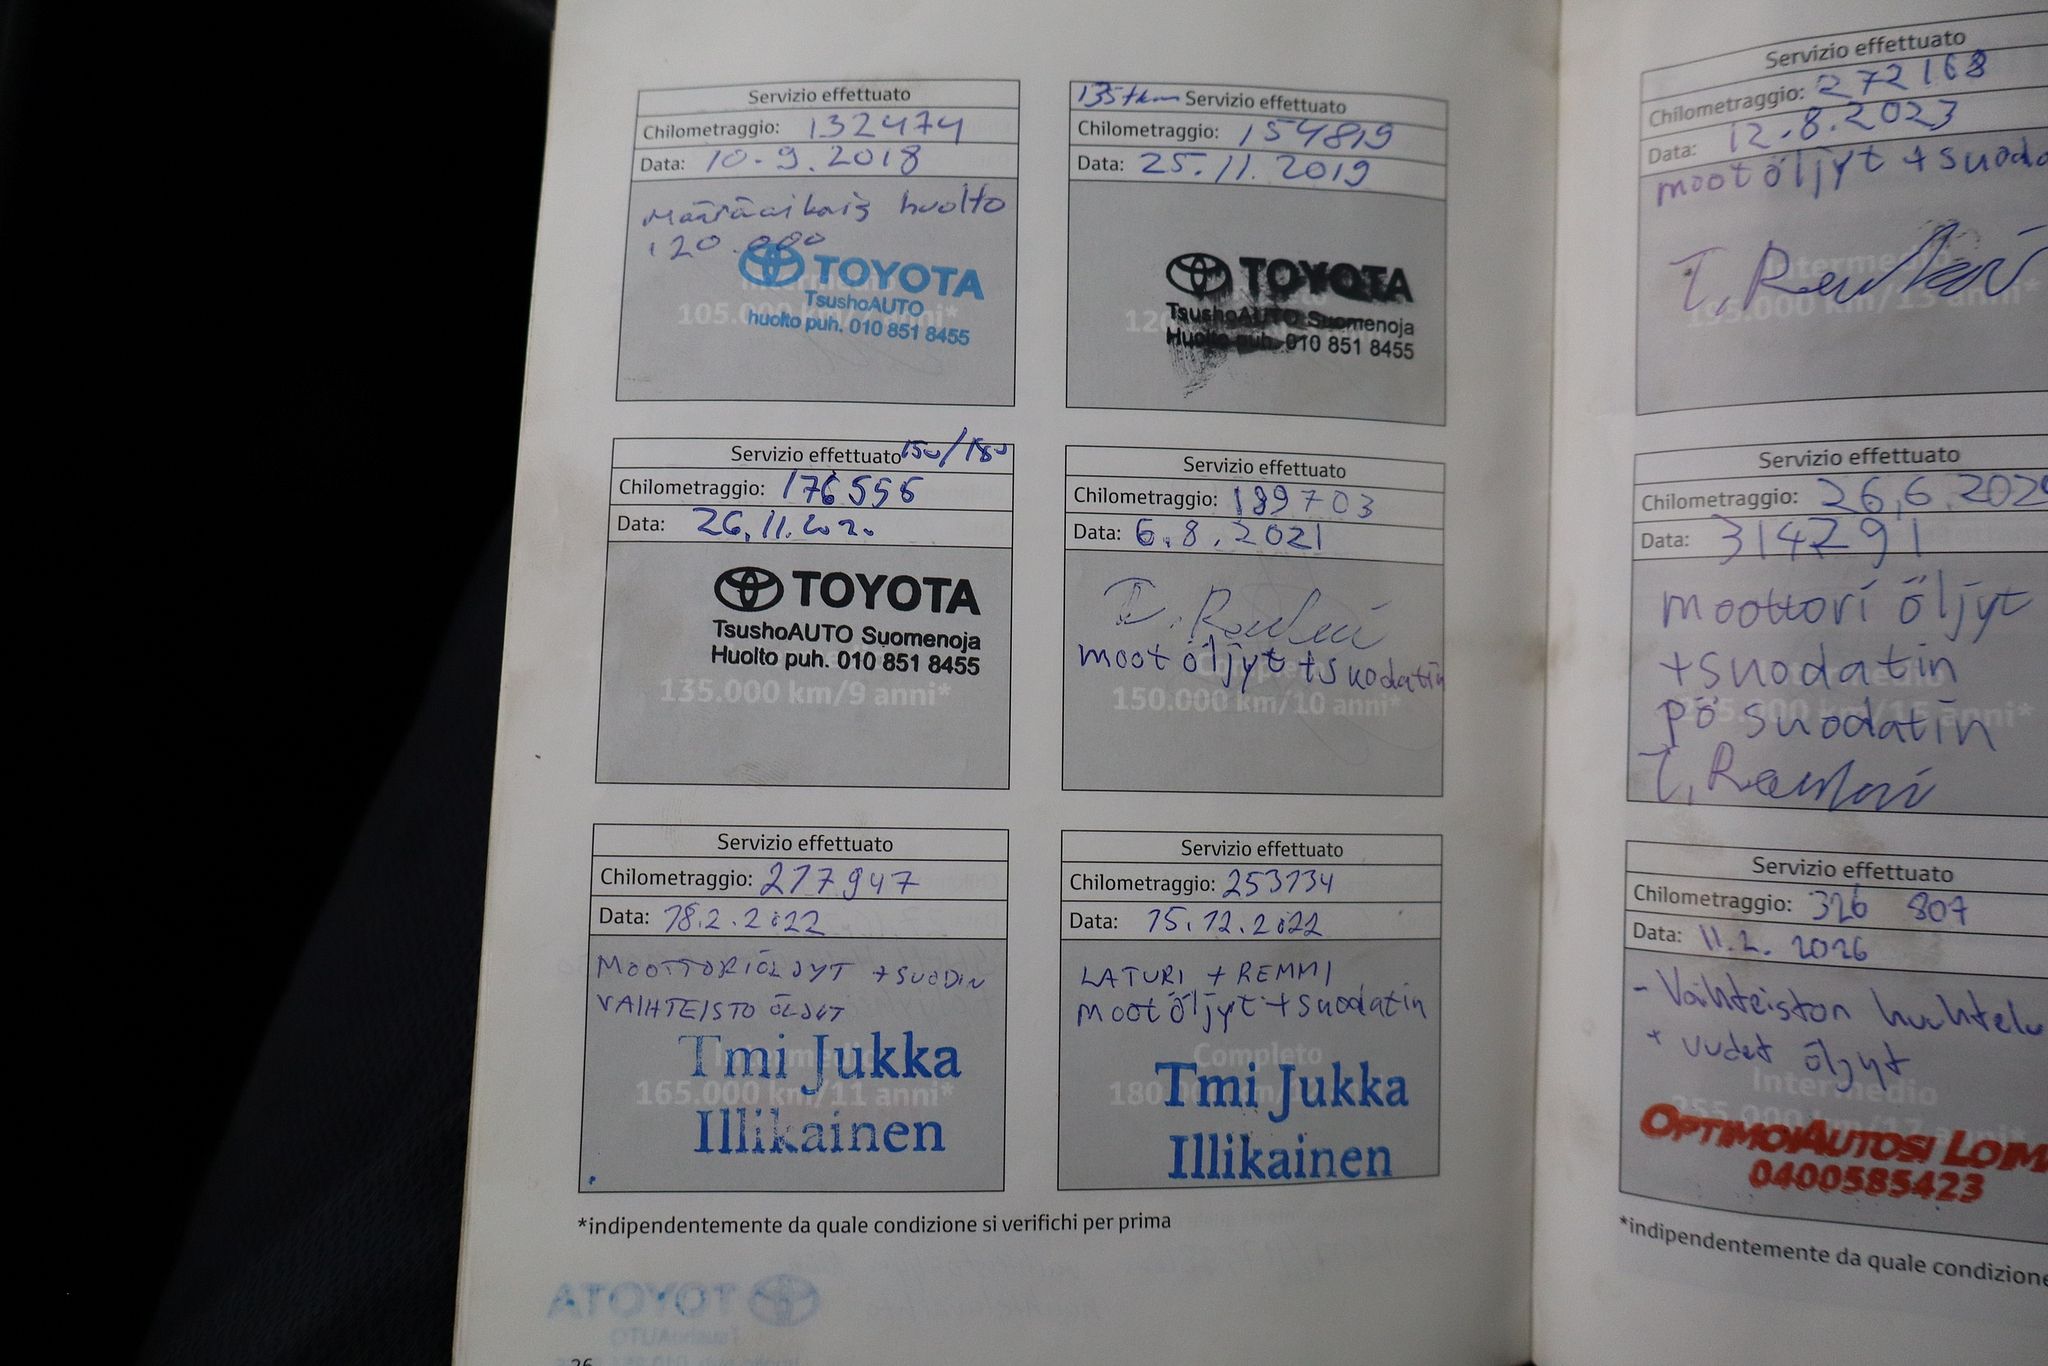 Servizio effettuato
Chilometraggio: 132474
Data: 10.9.2018
Määräaikais huolto
120.000
TOYOTA
TsushoAUTO
huolto puh. 010 851 8455
135tkm Servizio effettuato
Chilometraggio: 154819
Data: 25.11.2019
TOYOTA
TsushoAUTO Suomenoja
Huolto puh. 010 851 8455
Servizio effettuato 150/180
Chilometraggio: 176556
Data: 26.11.2020
TOYOTA
TsushoAUTO Suomenoja
Huolto puh. 010 851 8455
135.000 km/9 anni*
Servizio effettuato
Chilometraggio: 189703
Data: 6.8.2021
moot öljyt + suodatin
Completo
150.000 km/10 anni*
Servizio effettuato
Chilometraggio: 217947
Data: 18.2.2022
MOOTTORIÖLJYT + SUODIN
VAIHTEISTO ÖLJYT
Intermedio
165.000 km/11 anni*
Tmi Jukka
Illikainen
Servizio effettuato
Chilometraggio: 253134
Data: 15.12.2022
LATURI + REMMI
moot öljyt + suodatin
Completo
Tmi Jukka
Illikainen
*indipendentemente da quale condizione si verifichi per prima
TOYOTA
TsushoAUTO
26
Servizio effettuato
Chilometraggio: 272168
Data: 12.8.2023
moot öljyt + suoda
Intermedio
Servizio effettuato
Chilometraggio: 26.6.202
Data: 314291
moottori öljyt
+suodatin
pö suodatin
Servizio effettuato
Chilometraggio: 326 807
Data: 11.2.2026
- Vaihteiston huuhtelu
+ uudet öljyt
Intermedio
255.000 km/17 anni*
OPTIMOIAUTOSI LOIM
0400585423
*indipendentemente da quale condizione